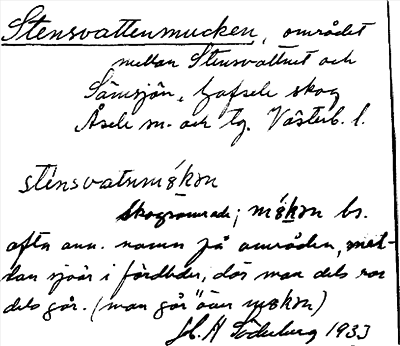 Stensvattenmucken, området
mellan Stensvattnet och
Särvsjön, Gafsele skog
Åsele sn. och tg. Västerb. l.
stènsvatnmókon
Skogsområde; mókon br.
ofta anv. namn på områden, mel-
lan sjöar i färdleder, där man dels ror
dels går. (man går "över mókon)
H. Söderberg 1933